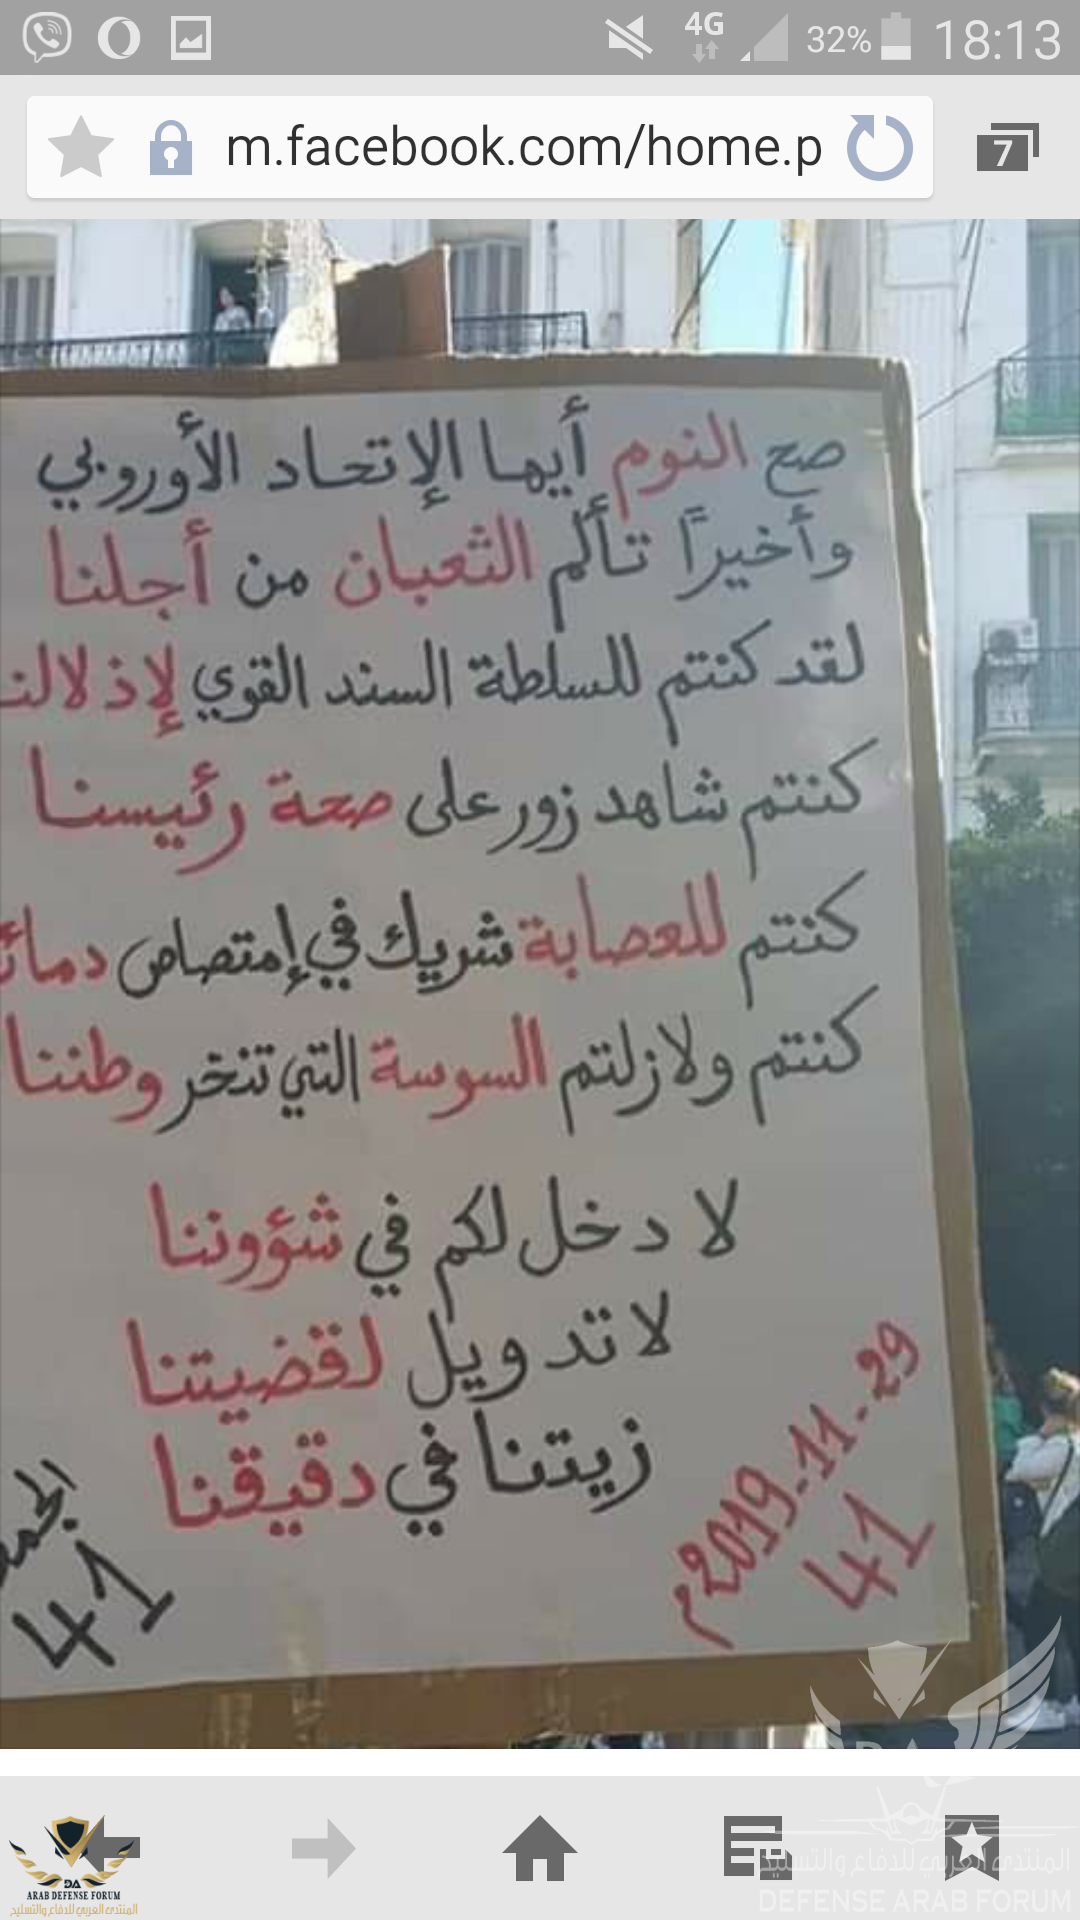 4G 32% 18:13
m.facebook.com/home.p
7
صح النوم أيها الإتحاد الأوروبي
وأخيراً تألم الثعبان من أجلنا
لقد كنتم للسلطة السند القوي لإذلالنـ
كنتم شاهد زور على صحة رئيسنا
كنتم للعصابة شريك في إمتصاص دمائـ
كنتم ولازلتم السوسة التي تنخر وطننا
لا دخل لكم في شؤوننا
لا تدويل لقضيتنا
زيتنا في دقيقنا
29-11-2019م
41
الجمـ
41
DA
ARAB DEFENSE FORUM
المنتدى العربي للدفاع والتسليح
DA
المنتدى العربي للدفاع والتسليح
DEFENSE ARAB FORUM